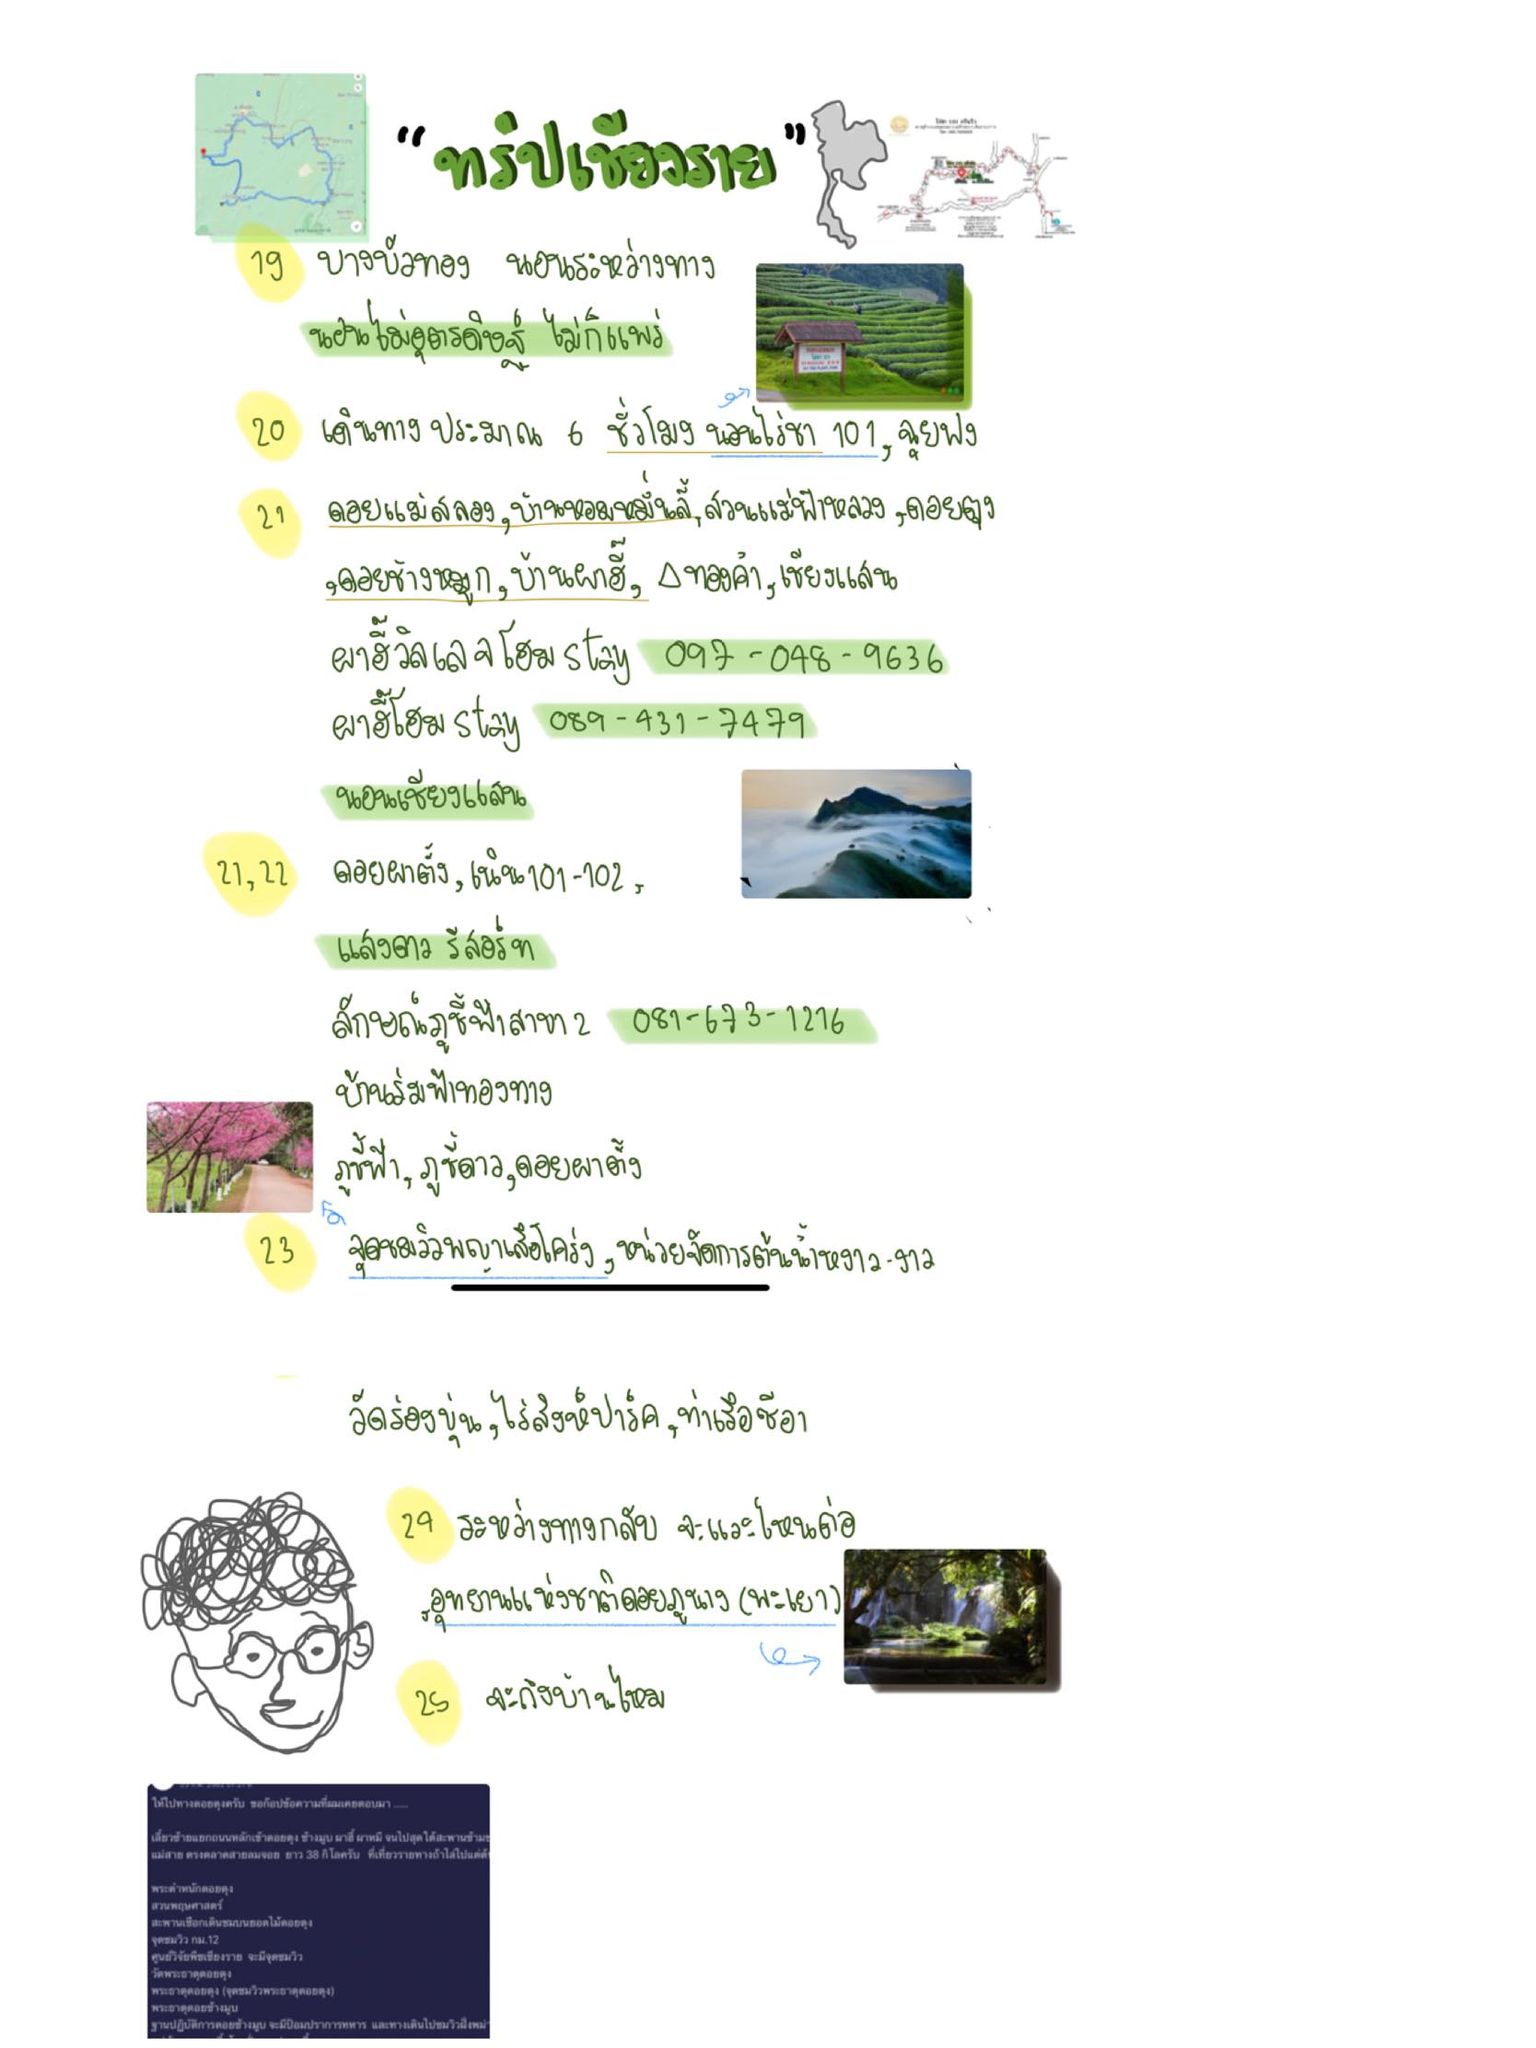 “ทริปเชียงราย”
19 บางบัวทอง นอนระหว่างทาง
นอนไม่อุตรดิษฐ์ ไม่ก็แพร่
20 เดินทาง ประมาณ 6 ชั่วโมง นอนไร่ชา 101, ฉุยฟง
21 ดอยแม่สลอง, บ้านหอมหมื่นลี้, สวนแม่ฟ้าหลวง, ดอยตุง
,ดอยช้างหมูก, บ้านผาฮี้, △ทองคำ, เชียงแสน
ผาฮี้วิลเลจโฮม stay 097-048-9636
ผาฮี้โฮม stay 089-431-7479
นอนเชียงแสน
21,22 ดอยผาตั้ง, เนิน 101-102,
แสงดาว รีสอร์ท
ลักษณ์ภูชี้ฟ้าสาขา 2 081-673-1216
บ้านร่มฟ้าทองทาง
ภูชี้ฟ้า, ภูชี้ดาว, ดอยผาตั้ง
23 จุดชมวิวพญาเสือโคร่ง, หน่วยจัดการต้นน้ำหงาว-งาว
วัดร่องขุ่น, ไร่สิงห์ปาร์ค, ท่าเรือชีอา
24 ระหว่างทางกลับ จะแวะไหนต่อ
,อุทยานแห่งชาติดอยภูนาง (พะเยา)
25 จะถึงบ้านไหม
ให้ไปทางดอยตุงครับ ขอก๊อปข้อความที่ผมเคยตอบมา .....
เลี้ยวซ้ายแยกถนนหลักเข้าดอยตุง ช้างมูบ ผาฮี้ ผาหมี จนไปสุดใต้สะพานข้าม
แม่สาย ตรงตลาดสายลมจอย ยาว 38 กิโลครับ ที่เที่ยวรายทางถ้าไล่ไปแต่ต้
พระตำหนักดอยตุง
สวนพฤษศาสตร์
สะพานเชือกเดินชมบนยอดไม้ดอยตุง
จุดชมวิว กม.12
ศูนย์วิจัยพืชเชียงราย จะมีจุดชมวิว
วัดพระธาตุดอยตุง
พระธาตุดอยตุง (จุดชมวิวพระธาตุดอยตุง)
พระธาตุดอยช้างมูบ
ฐานปฏิบัติการดอยช้างมูบ จะมีป้อมปราการทหาร และทางเดินไปชมวิวฝั่งพม่า